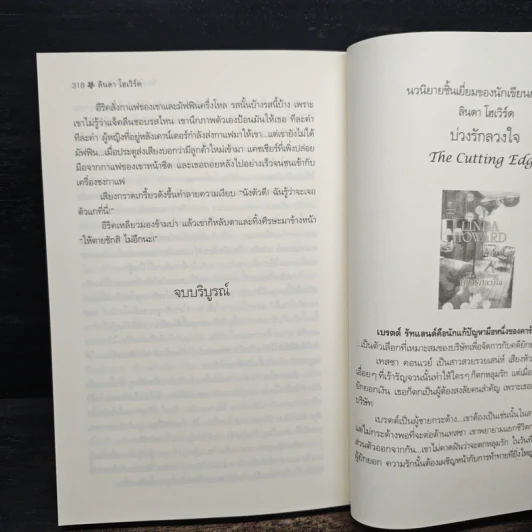 318 ลินดา โฮเวิร์ด
อีริคสั่งกาแฟของเขาและมัฟฟินครึ่งโหล รสนั้นบ้างรสนี้บ้าง เพราะ
เขาไม่รู้ว่าแจ็คลีนชอบรสไหน เขานึกภาพตัวเองป้อนมันให้เธอ ทีละคำ
ทีละคำ ผู้หญิงที่อยู่หลังเคาน์เตอร์กำลังส่งกาแฟมาให้เขา...แต่เขายังไม่ได้
มัฟฟิน...เมื่อประตูส่งเสียงบอกว่ามีลูกค้าใหม่เข้ามา แคชเชียร์ที่เพิ่งปล่อย
มือจากกาแฟของเขาหน้าซีด และเธอถอยหลังไปอย่างเร็วจนชนเข้ากับ
เครื่องชงกาแฟ
เสียงกราดเกรี้ยวดังขึ้นทำลายความเงียบ "นังตัวดี! ฉันรู้ว่าจะเจอ
ตัวแกที่นี่!"
อีริคเหลียวมองข้ามบ่า แล้วเขาก็หลับตาและทิ้งศีรษะมาข้างหน้า
"ให้ตายซักสิ ไม่อีกนะ!"
จบบริบูรณ์
นวนิยายชิ้นเยี่ยมของนักเขียน
ลินดา โฮเวิร์ด
บ่วงรักลวงใจ
The Cutting Edg
LINDA
HOWARD
เบรตต์ รัทแลนด์คือนักแก้ปัญหามือหนึ่งของคาร์
...เป็นตัวเลือกที่เหมาะสมของบริษัทเพื่อจัดการกับคดียัก
เทสซา คอนเวย์ เป็นสาวสวยรวยเสน่ห์ เสียงหัว
เฉื่อยๆ ที่เร้ารัญจวนนั้นทำให้ใครๆ ก็ตกหลุมรัก แต่เมื่อ
ยักยอกเงิน เธอก็ตกเป็นผู้ต้องสงสัยคนสำคัญ เพราะเธอ
บริษัท
เบรตต์เป็นผู้ชายกระด้าง...เขาต้องเป็นเช่นนั้นใน
แต่ไม่กระด้างพอที่จะต่อต้านเทสซา เขาพยายามแยกชีวิต
ส่วนตัวออกจากกัน...เขาไม่คาดฝันว่าจะตกหลุมรัก ในวัน
ผู้ยักยอก ความรักนั้นต้องเผชิญหน้ากับการท้าทายที่ยิ่งใหญ่